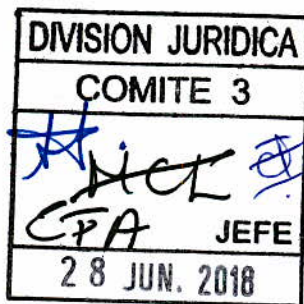 DIVISION JURIDICA
COMITE 3
MCL
CFA JEFE
28 JUN. 2018